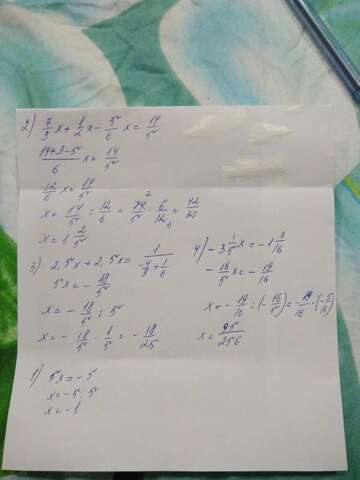 2) 7/3 x + 1/2 x - 5/6 x = 14/5
(14+3-5)/6 x = 14/5
12/6 x = 14/5
x = 14/5 : 12/6 = 14/5 · 6/12 = 42/30
x = 1 2/5
3) 2,5x + 2,5x = 1/(-4/9 + 1/6)
5x = - 18/5
x = - 18/5 : 5
x = - 18/5 · 1/5 = - 18/25
4) - 3 1/5 x = -1 3/16
- 16/5 x = - 19/16
x = - 19/16 : (- 16/5) = - 19/16 · (- 5/16)
x = 95/256
1) 5x = -5
x = -5 : 5
x = -1